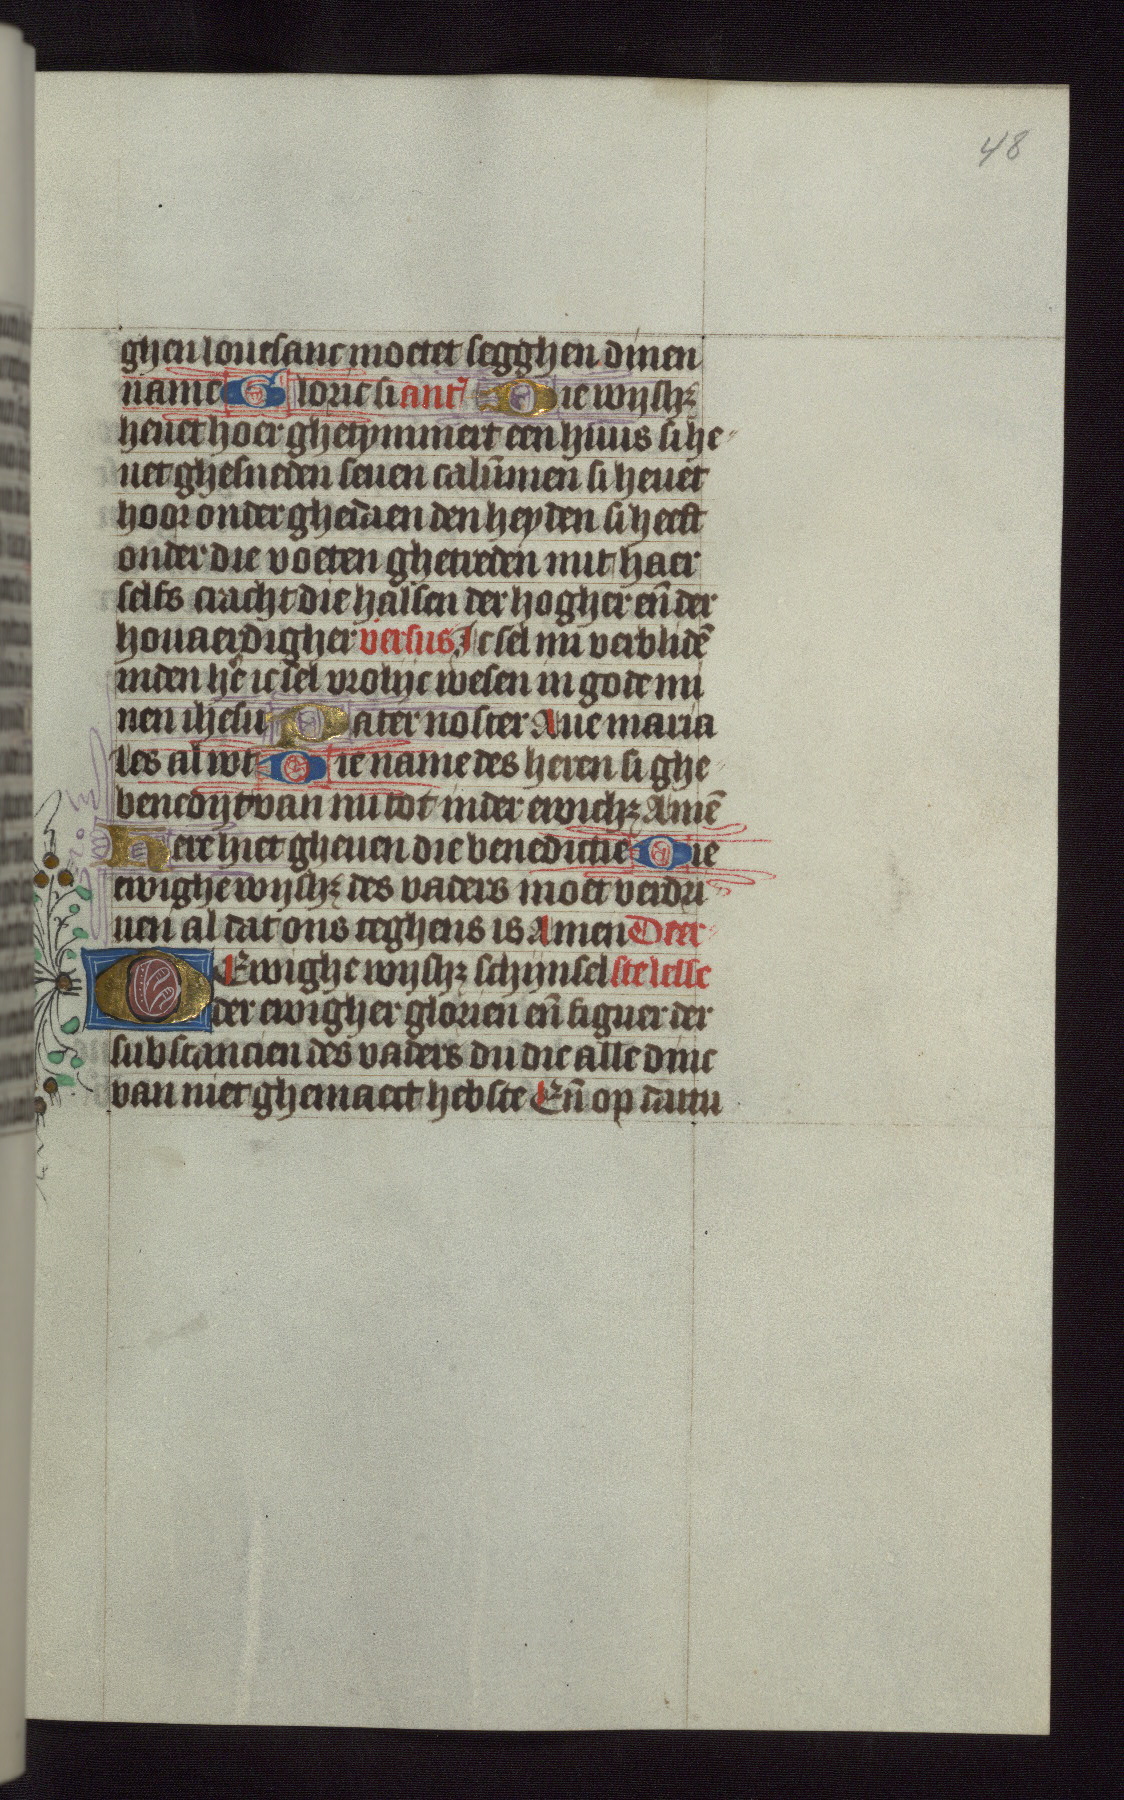 48
ghen louesanc moetet segghen dinen
name Glorie si ant' Die wijshz
heuet hoer ghetymmert een huus si he
uet ghesneden seuen calūmen si heuet
hoor onder ghedaen den heyden si heeft
onder die voeten ghetreden mit haer
selfs cracht die halsen der hogher eñ der
houaerdigher versus Ic sel mi verblidē
inden hē ic sel vrolijc wesen in gode mi
nen ihesu Pater noster Aue maria
les al wt Die name des heren si ghe
benedijt van nu tot inder ewichz Amē
Here hiet gheuen die benedictie Die
ewighe wijshz des vaders moet verdri
uen al dat ons teghens is Amen Deer
O Ewighe wijshz schijnsel ste lesse
der ewigher glorien eñ figuer der
substancien des vaders du die alle dinc
van niet ghemaect hebste Eñ op dattu